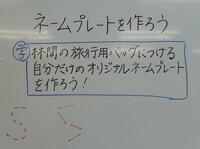 ネームプレートを作ろう
学 林間の旅行用バッグにつける
自分だけのオリジナルネームプレート
を作ろう!
S S